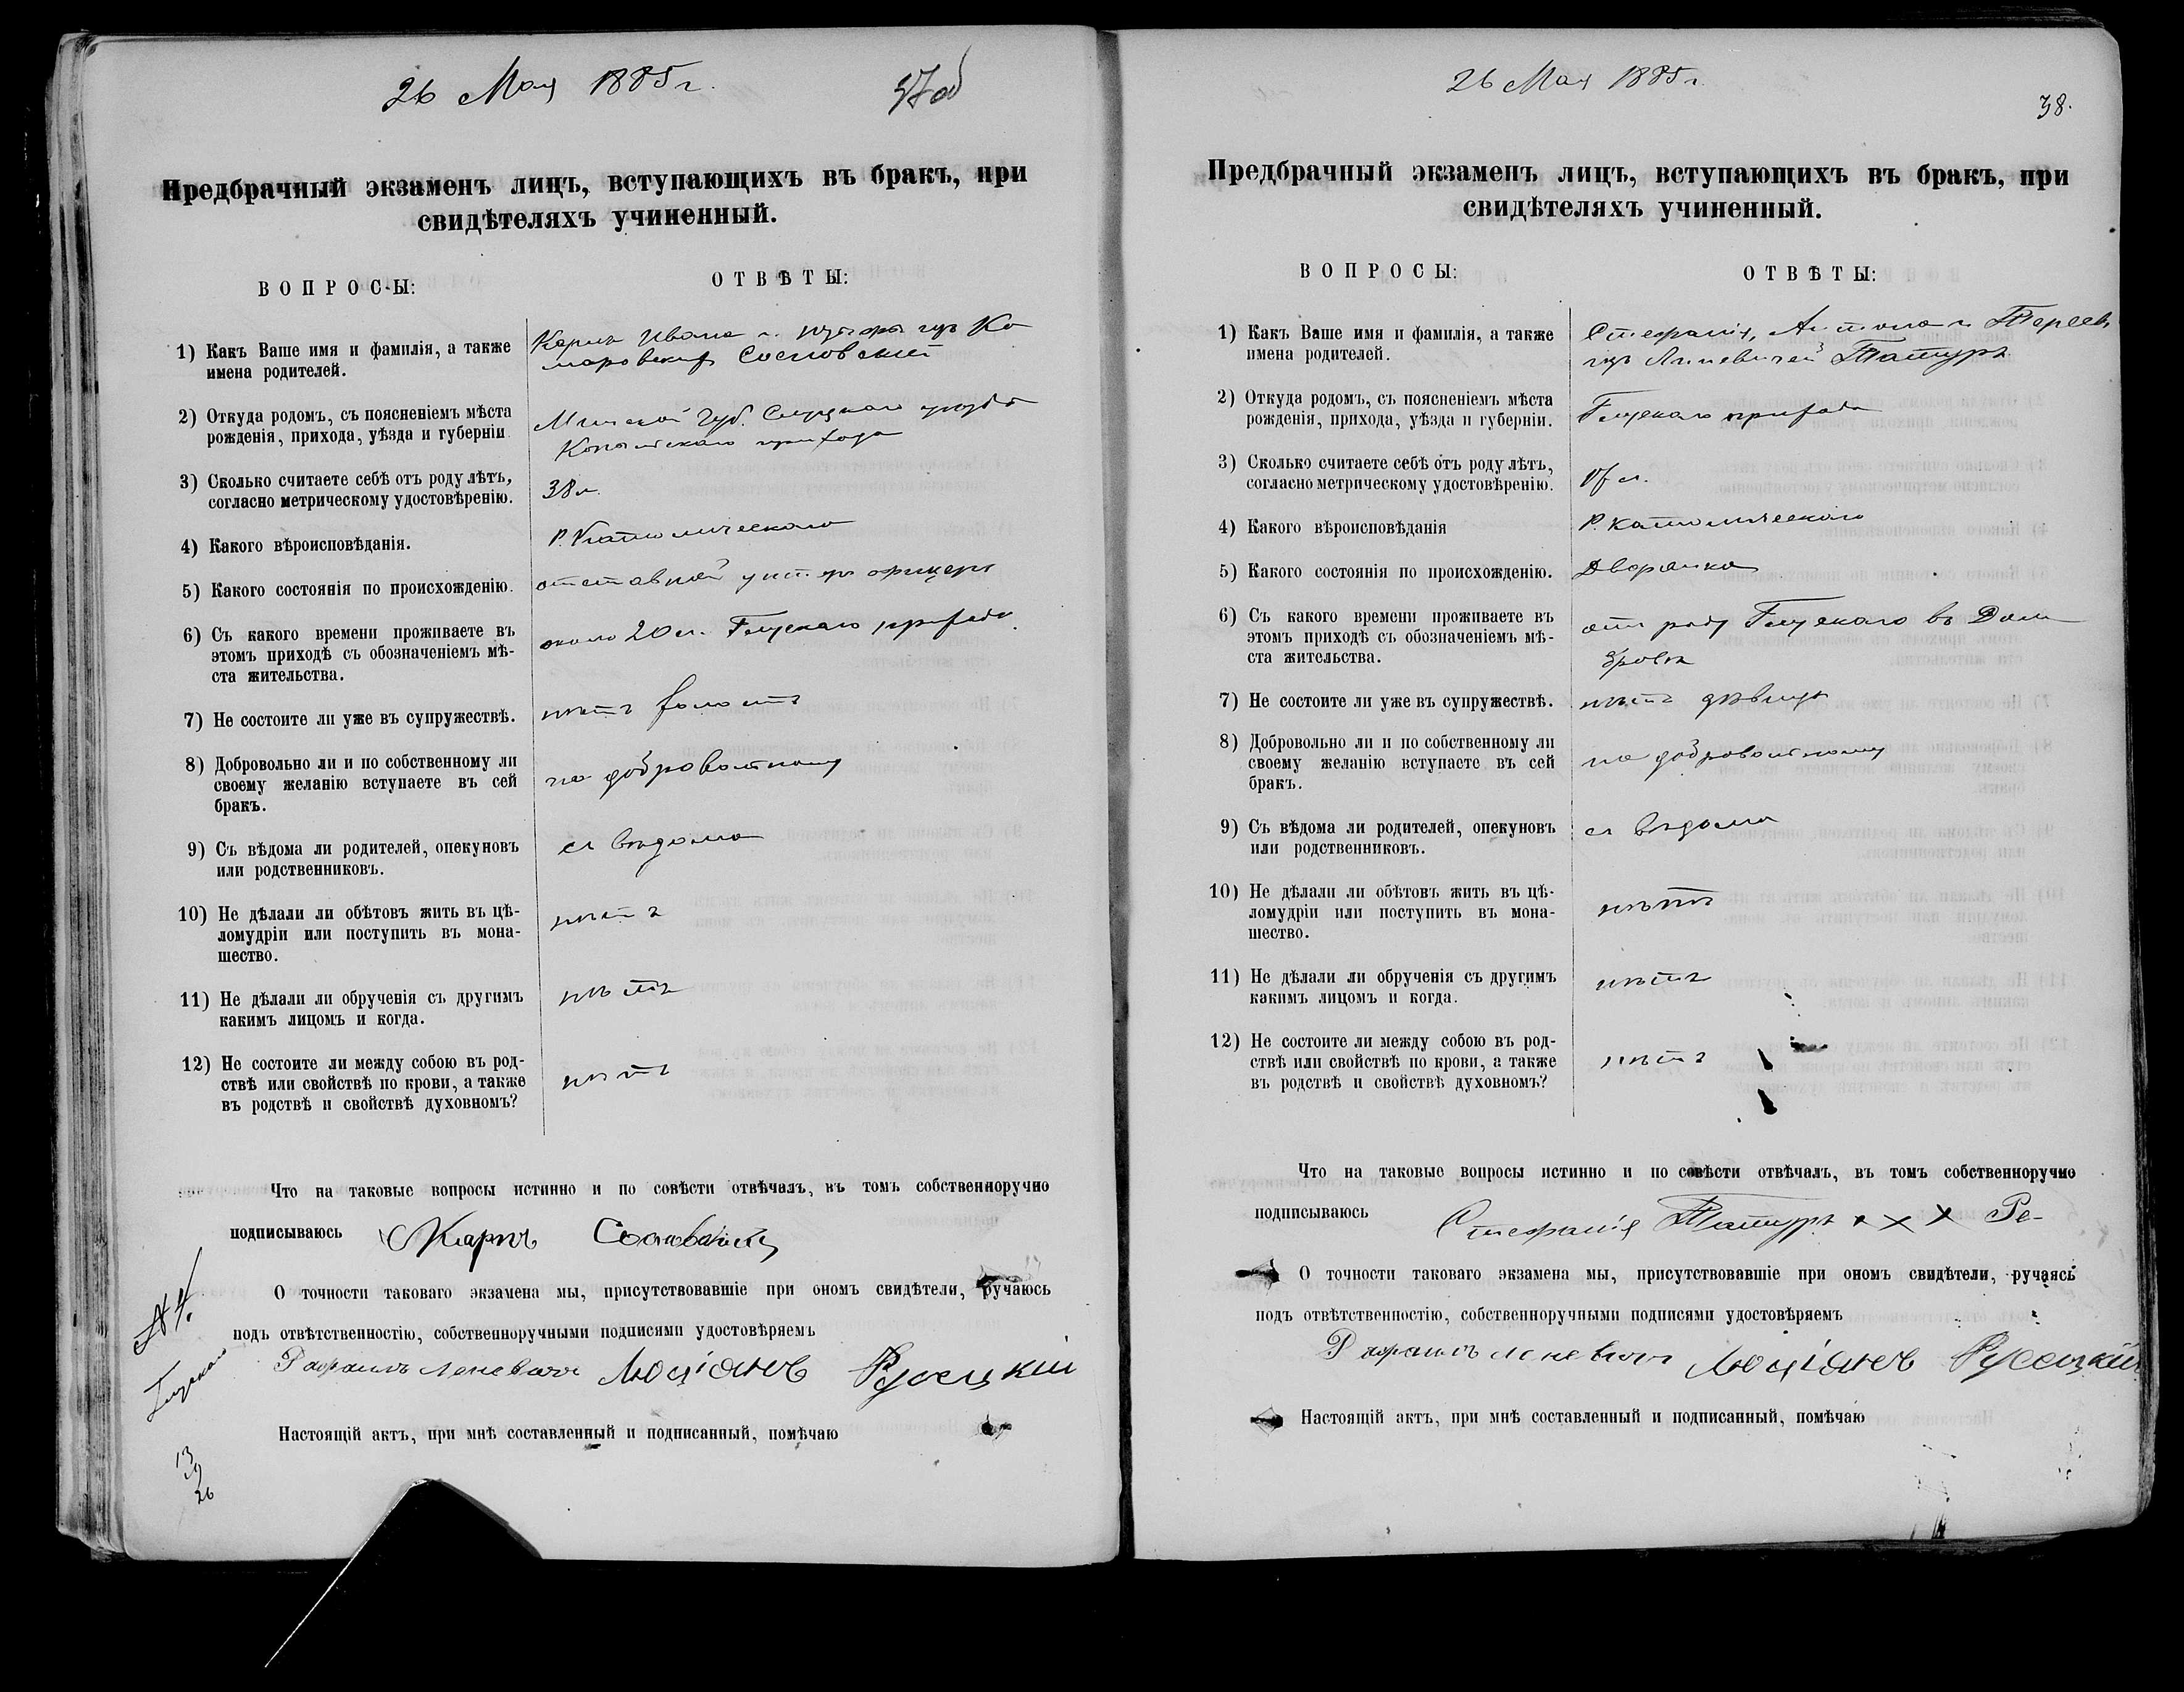 26 Мая 1885 г.
37 об
Предбрачный экзаменъ лицъ, вступающихъ въ бракъ, при
свидѣтеляхъ учиненный.
ВОПРОСЫ:
ОТВѢТЫ:
1) Какъ Ваше имя и фамилія, а также
имена родителей.
Карпъ Ивана и изъ Ко
маровскихъ Сосновскій
2) Откуда родомъ, съ поясненіемъ мѣста
рожденія, прихода, уѣзда и губерніи.
Минской Губ. Слуцкаго уѣзда
Копыльскаго прихода
3) Сколько считаете себѣ отъ роду лѣтъ,
согласно метрическому удостовѣренію.
38 л.
4) Какого вѣроисповѣданія.
Р. Католическаго
5) Какого состоянія по происхожденію.
отставной унтеръ офицеръ
6) Съ какого времени проживаете въ
этомъ приходѣ съ обозначеніемъ мѣ-
ста жительства.
около 20 л. Глускаго прихода
7) Не состоите ли уже въ супружествѣ.
нѣтъ холостъ
8) Добровольно ли и по собственному ли
своему желанію вступаете въ сей
бракъ.
по добровольному
9) Съ вѣдома ли родителей, опекуновъ
или родственниковъ.
съ вѣдома
10) Не дѣлали ли обѣтовъ жить въ цѣ-
ломудріи или поступить въ мона-
шество.
нѣтъ
11) Не дѣлали ли обрученія съ другимъ
какимъ лицомъ и когда.
нѣтъ
12) Не состоите ли между собою въ род-
ствѣ или свойствѣ по крови, а также
въ родствѣ и свойствѣ духовномъ?
нѣтъ
Что на таковые вопросы истинно и по совѣсти отвѣчалъ, въ томъ собственноручно
подписываюсь Карпъ Сосновскій
О точности таковаго экзамена мы, присутствовавшіе при ономъ свидѣтели, ручаюсь
подъ отвѣтственностію, собственноручными подписями удостовѣряемъ
Рафаилъ Люціанъ Русецкій
Настоящій актъ, при мнѣ составленный и подписанный, помѣчаю
13
19
26
26 Мая 1885 г.
38.
Предбрачный экзаменъ лицъ, вступающихъ въ бракъ, при
свидѣтеляхъ учиненный.
ВОПРОСЫ:
ОТВѢТЫ:
1) Какъ Ваше имя и фамилія, а также
имена родителей.
Стефанія, Антона и Терезы
изъ Татуръ
2) Откуда родомъ, съ поясненіемъ мѣста
рожденія, прихода, уѣзда и губерніи.
Глускаго прихода
3) Сколько считаете себѣ отъ роду лѣтъ,
согласно метрическому удостовѣренію.
л.
4) Какого вѣроисповѣданія
Р. католическаго
5) Какого состоянія по происхожденію.
Дворянка
6) Съ какого времени проживаете въ
этомъ приходѣ съ обозначеніемъ мѣ-
ста жительства.
отъ роду Глускаго въ Дом
7) Не состоите ли уже въ супружествѣ.
нѣтъ дѣвица
8) Добровольно ли и по собственному ли
своему желанію вступаете въ сей
бракъ.
по добровольному
9) Съ вѣдома ли родителей, опекуновъ
или родственниковъ.
съ вѣдома
10) Не дѣлали ли обѣтовъ жить въ цѣ-
ломудріи или поступить въ мона-
шество.
нѣтъ
11) Не дѣлали ли обрученія съ другимъ
какимъ лицомъ и когда.
нѣтъ
12) Не состоите ли между собою въ род-
ствѣ или свойствѣ по крови, а также
въ родствѣ и свойствѣ духовномъ?
нѣтъ
Что на таковые вопросы истинно и по совѣсти отвѣчалъ, въ томъ собственноручно
подписываюсь Стефанія Татуръ x x x
О точности таковаго экзамена мы, присутствовавшіе при ономъ свидѣтели, ручаясь
подъ отвѣтственностію, собственноручными подписями удостовѣряемъ
Рафаилъ Люціанъ Русецкій
Настоящій актъ, при мнѣ составленный и подписанный, помѣчаю